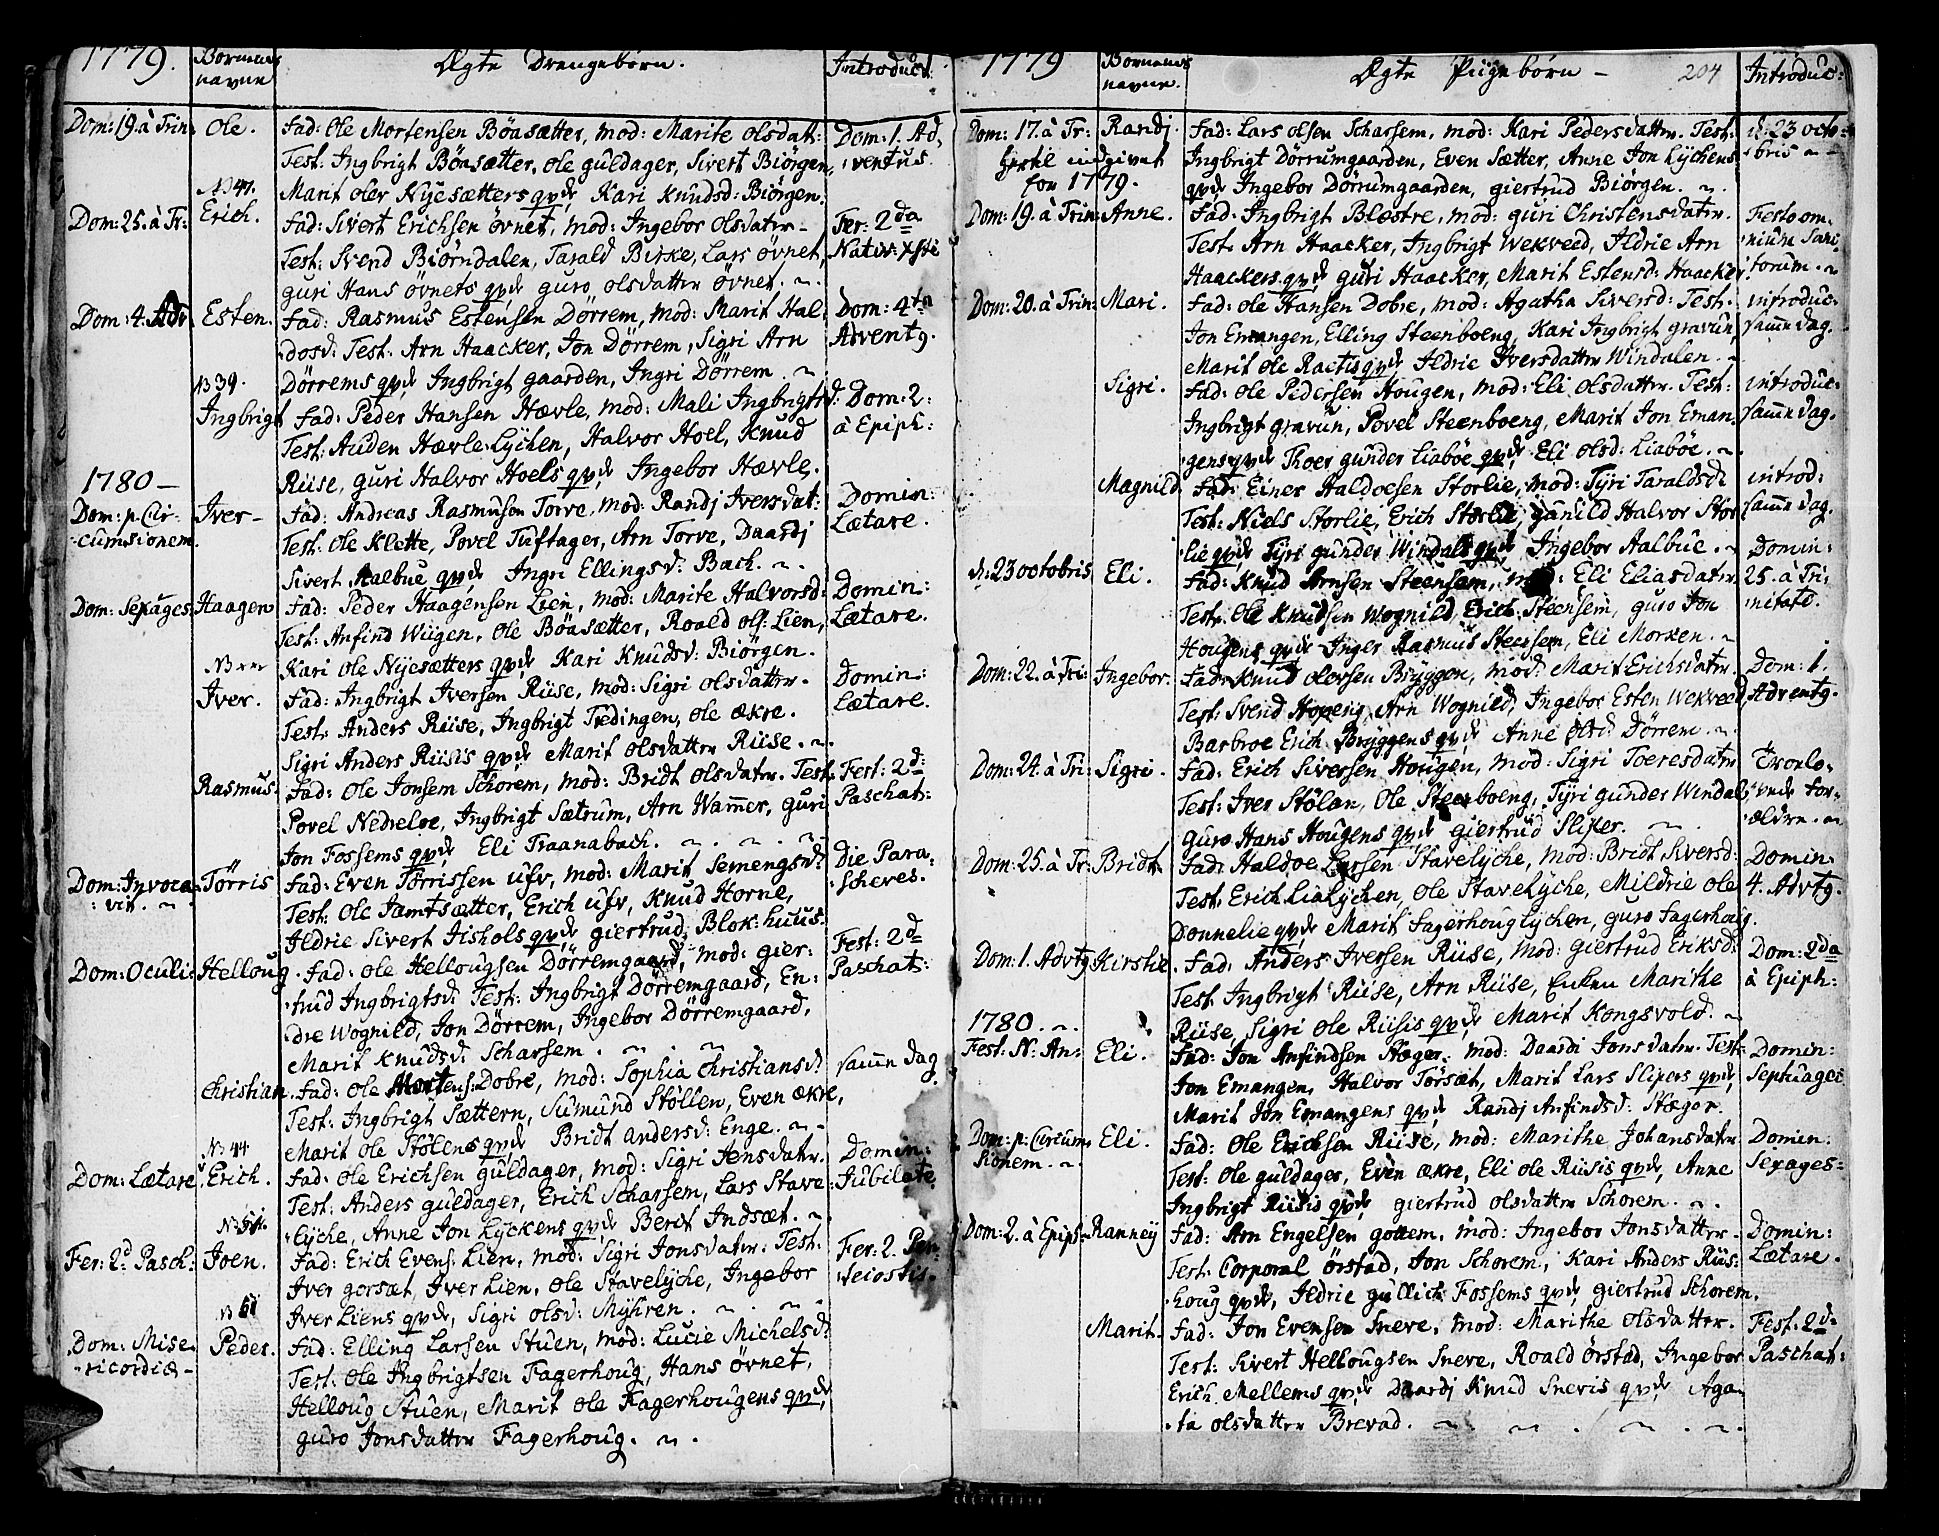 1779. Børnenes navne Ægte Drengebørn. Introduct:
Dom: 19. à Trin: Ole. Fad: Ole Mortensen Böasætter, mod: Marite olsdat: Dom: 1. Ad,
Test: Ingbrigt Böasætter, ole guldager, Sivert Biörgen, ventus.
Marit oler Nyesætters qvde, Kari Knudsd: Biörgen.
No 41.
Dom: 25. à Tr: Erich. Fad: Sivert Erichsen övnet, mod: Ingebor olsdatr. Fer: 2da
Test: Svend Biörndalen, Tarald Birke, Lars övnet, Nativ: Xsti
guri Hans övnets qvde guro olsdatter övnet.
Dom: 4. Adv Esten. Fad: Rasmus Estensen Dörrem, mod: Marit Hal- Dom: 4ta
dosd: Test: Arn Haacker, Jon Dörrem, Sigri Arn Adventg.
Dörrems qvde, Ingbrigt gaarden, Ingri Dörrem.
No 39.
Ingbrigt Fad: Peder Hansen Hævle, mod: Mali Ingbrigtsd: Dom: 2:
Test: Auden Hævle Lychen, Halvor Hoel, Knud à Epiph:
Riise, guri Halvor Hoels qvde, Ingebor Hævle.
1780
Dom: p. Cir- Iver Fad: Andreas Rasmusen Torve, mod: Randj Iversdat: Domin:
cumsionem. Test: Ole Klette, Povel Tuftager, Arn Torve, Daardj Lætare.
Sivert Aalbue qvde Ingri Ellingsd: Bach.
Dom: Sexages Haagen Fad: Peder Haagensen Lien, mod: Marite Halvorsd: Domin:
Test: Anfind Wiigen, Ole Böasætter, Roald ols: Lien, Lætare.
Kari Ole Nyesætters qvde, Kari Knudsd: Biörgen.
Iver. Fad: Ingbrigt Iversen Riise, mod: Sigri olsdattr. Domin:
Test: Anders Riise, Ingbrigt Tredingen, ole ækre. Lætare.
Sigri Anders Riisis qvde Marit olsdatter Riise.
Rasmus. Fad: Ole Jonsem Schorem, mod: Bridt olsdatr. Test: Fest: 2d:
Povel Nedreloe, Ingbrigt Sætrum, Arn Wammer, guri Paschat:
Jon Fossems qvde Eli Traanabach.
Dom: Invoca- Törris Fad: Even Törrissen Ufv, mod: Marit Semengsd: Die Para-
vit. Test: Ole Jamtsætter, Erich Ufv, Knud Horne, sceves.
Ildrie Sivert Iishols qvde giertrud Blok:huus.
Dom: Oculi: Helloug. Fad: ole Hellougsen Dörremgaard, mod: gier- Fest: 2d
trud Ingbrigtsd: Test: Ingbrigt Dörremgaard, En- Paschat:
dre Wognild, Jon Dörrem, Ingebor Dörremgaard,
Marit Knudsd: Scharsem.
Christian. Fad: Ole Mortens: Dobre, mod: Sophia Christiansd: samme Dag
Test: Ingbrigt Sættern, Sumund Stöllen, Even ækre,
Marit ole Stölens qvde Bridt andersd: Enge.
No 44
Dom: Lætare Erich. Fad: Ole Erichsen guldager, mod: Sigri Jensdatr. Domin:
Test: Anders guldager, Erich Scharsem, Lars Stave- Jubilate.
lyche, Anne Jon Lyckens qvde Berit Indsæt.
Fer: 2d Pasch: Joen. Fad: Erich Evens: Lien, mod: Sigri Jonsdatr. Test: Fer: 2. Pen-
Iver gorsæt, Iver Lien, ole Stavelyche, Ingebor tecostis.
Iver Liens qvde, Sigri olsd: Myhren.
No 61
Dom: Mise- Peder. Fad: Elling Larsen Stuen, mod: Lucie Michelsd:
ricordiæ Test: Ole Ingbrigtsen Fagerhoug, Hans övnet,
Helloug Stuen, Marit ole Fagerhougens qvde,
guro Jonsdatter Fagerhoug.
1779 Børnenes navne. Ægte Pigebørn 204 Introduc:
Dom: 17. à Tr: Randj. Fad: Lars olsen Scharsem, mod: Kari Pedersdattr. Test: d: 23 octo-
Ingbrigt Dörrumgaarden, Even Sætter, Anne Jon Lychens bris
for 1779. qvde Ingebor Dörrumgaarden, giertrud Biörgen.
Dom: 19. à Trin: Anne. Fad: Ingbrigt Blæstre, mod: guri Christensdatr. Festo om-
Test: Arn Haacker, Ingbrigt Wekveed, Ildrie Arn nium Sanc-
Haackers qvde guri Haacker, Marit Estensd: Haacker torum.
Dom: 20. à Trin: Mari. Fad: Ole Hansen Dobre, mod: Agatha Siversd: Test: introduc:
Jon Emangen, Elling Steenboeng, Kari Ingbrigt gravun, samme dag.
Marit Ole Raetis qvde Ildrie Iversdattr Windalen.
Sigri. Fad: Ole Pedersen Hougen, mod: Eli olsdatter. Test: introduc:
Ingbrigt gravun, Povel Steenboeng, Marit Jon Eman- samme dag.
gens qvde Thoer gunder Liaböe qvde, Eli olsd: Liaböe.
Magnild Fad: Einer Haldoesen Storlie, mod: Tyri Taraldsd: introd:
Test: Niels Storlie, Erich Storlie, gunild Halvor Stor- samme dag.
lie qvde Tyri gunder Windals qvde, Ingebor Aalbue.
d. 23 octobris Eli. Fad: Knud Arnsen Steensem, mod: Eli Eliasdatr. Domin:
Test: Ole Knudsen Wognild, Erich Steensem, guro Jon 25. à Tri-
Hougens qvde Inger Rasmus Steensem, Eli Morken. nitate.
Dom: 22. à Tri: Ingebor. Fad: Knud olevsen Bryggen, mod: Marit Erichsdatr. Dom: 1.
Test: Svend Hoveng, Arn Wognild, Ingebor Esten Wekveed, Adventg.
Barbroe Erich Bryggens qvde Anne olsd: Dörrem.
Dom: 24. à Tri: Sigri. Fad: Erich Siversen Hougen, mod: Sigri Toeresdatr Trolo-
Test: Iver Stölan, Ole Steenboeng, Tyri gunder Windal, vede for-
guro Hans Hougens qvde giertrud Sliper. ældre.
Dom: 25. à Tr: Bridt. Fad: Haldoe Larsen Stavelyche, mod: Bridt Siversd: Domin:
Test: Erich Lialychen, Ole Stavelyche, Mildrie ole 4. Advtg.
Donnelie qvde Marit Fagerhouglychen, guro Fagerhoug.
Dom: 1. Advtg Kirstie. Fad: Anders Iversen Riise, mod: giertrud Eriksd: Dom: 2da
Test: Ingbrigt Riise, Arn Riise, Enken Marithe à Epiph:
Riise, Sigri ole Riisis qvde Marit Kongsvold.
1780.
Fest: N: An: Eli. Fad: Jon Anfindsen Hæger, mod: Daardi Jonsdatr. Test: Domin:
Jon Emangen, Halvor Törsæt, Marit Lars Slipers qvde, Septuages
Marit Jon Emangens qvde Randj Anfindsd: Hæger.
Dom: p: Circum- Eli. Fad: Ole Erichsen Riise, mod: Marithe Johansdatr Domin:
sionem. Test: Ole guldager, Even ækre, Eli ole Riisis qvde, Anne Sexages:
Ingbrigt Riisis qvde, giertrud olsdatter Schorem.
Dom: 2. à Epiph: Ranney Fad: Arn Engelsen gottem, mod: Ingebor Jonsdatter. Domin:
Test: Corporal örstad, Jon Schorem, Kari Anders Riis- Lætare.
houg qvde, Ildrie gullich Fossems qvde, giertrud Schorem.
Marit. Fad: Jon Evensen Sneve, mod: Marithe olsdatter. Fest: 2d:
Test: Sivert Hellougsen Sneve, Roald örstad, Ingebor Paschat:
Erich Mellems qvde Daardj Knud Snevis qvde Aga-
ta olsdatter Brevad.